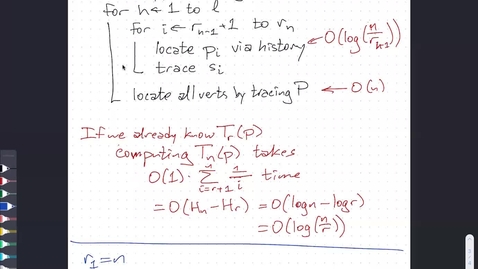 for h←1 to l
for i←r_{h-1}+1 to r_h
locate p_i via history ← O(log(n/r_{h-1}))
trace s_i
locate all verts by tracing P ← O(n)
If we already know T_r(p)
computing T_n(p) takes
O(1)·∑_{i=r+1}^{n} 1/i time
=O(H_n-H_r) =O(log n-log r)
=O(log(n/r))
r_1=n